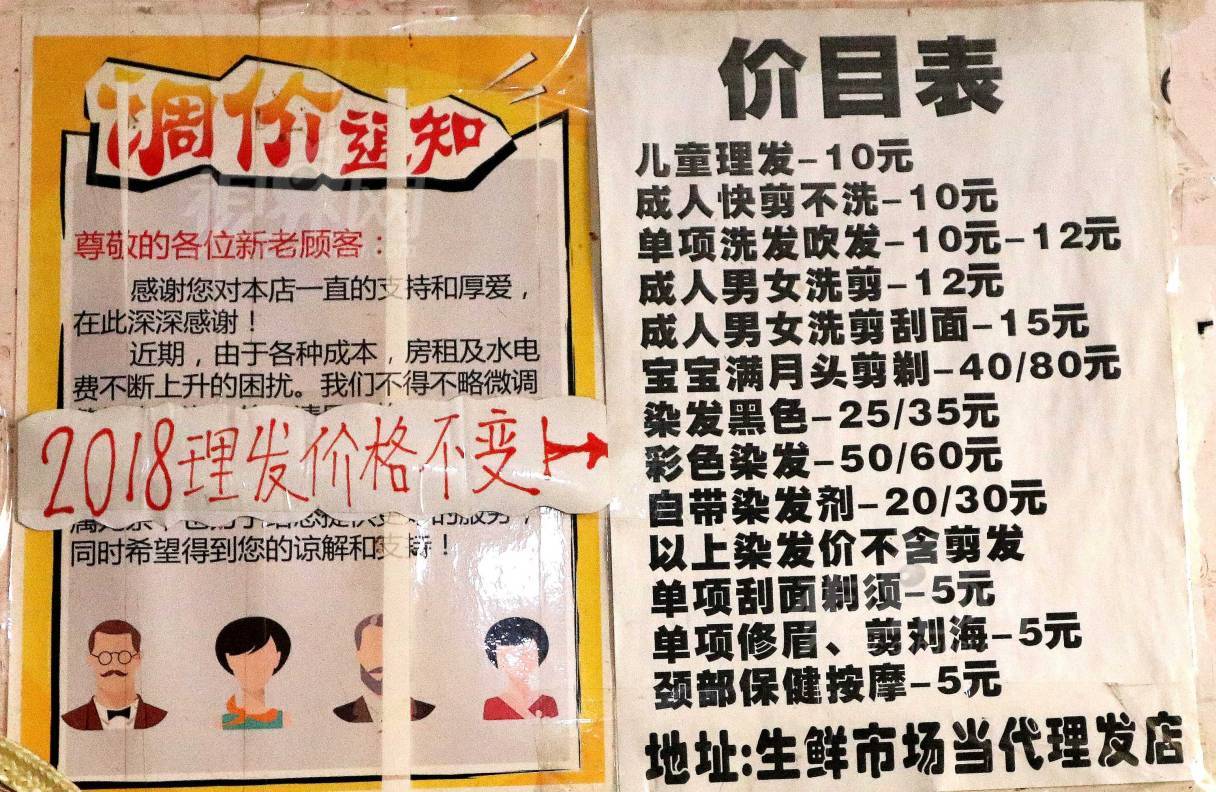 调价通知
尊敬的各位新老顾客：
感谢您对本店一直的支持和厚爱，
在此深深感谢！
近期，由于各种成本，房租及水电
费不断上升的困扰。我们不得不略微调
2018理发价格不变
同时希望得到您的谅解和支持！
价目表
儿童理发-10元
成人快剪不洗-10元
单项洗发吹发-10元-12元
成人男女洗剪-12元
成人男女洗剪刮面-15元
宝宝满月头剪剃-40/80元
染发黑色-25/35元
彩色染发-50/60元
自带染发剂-20/30元
以上染发价不含剪发
单项刮面剃须-5元
单项修眉、剪刘海-5元
颈部保健按摩-5元
地址:生鲜市场当代理发店